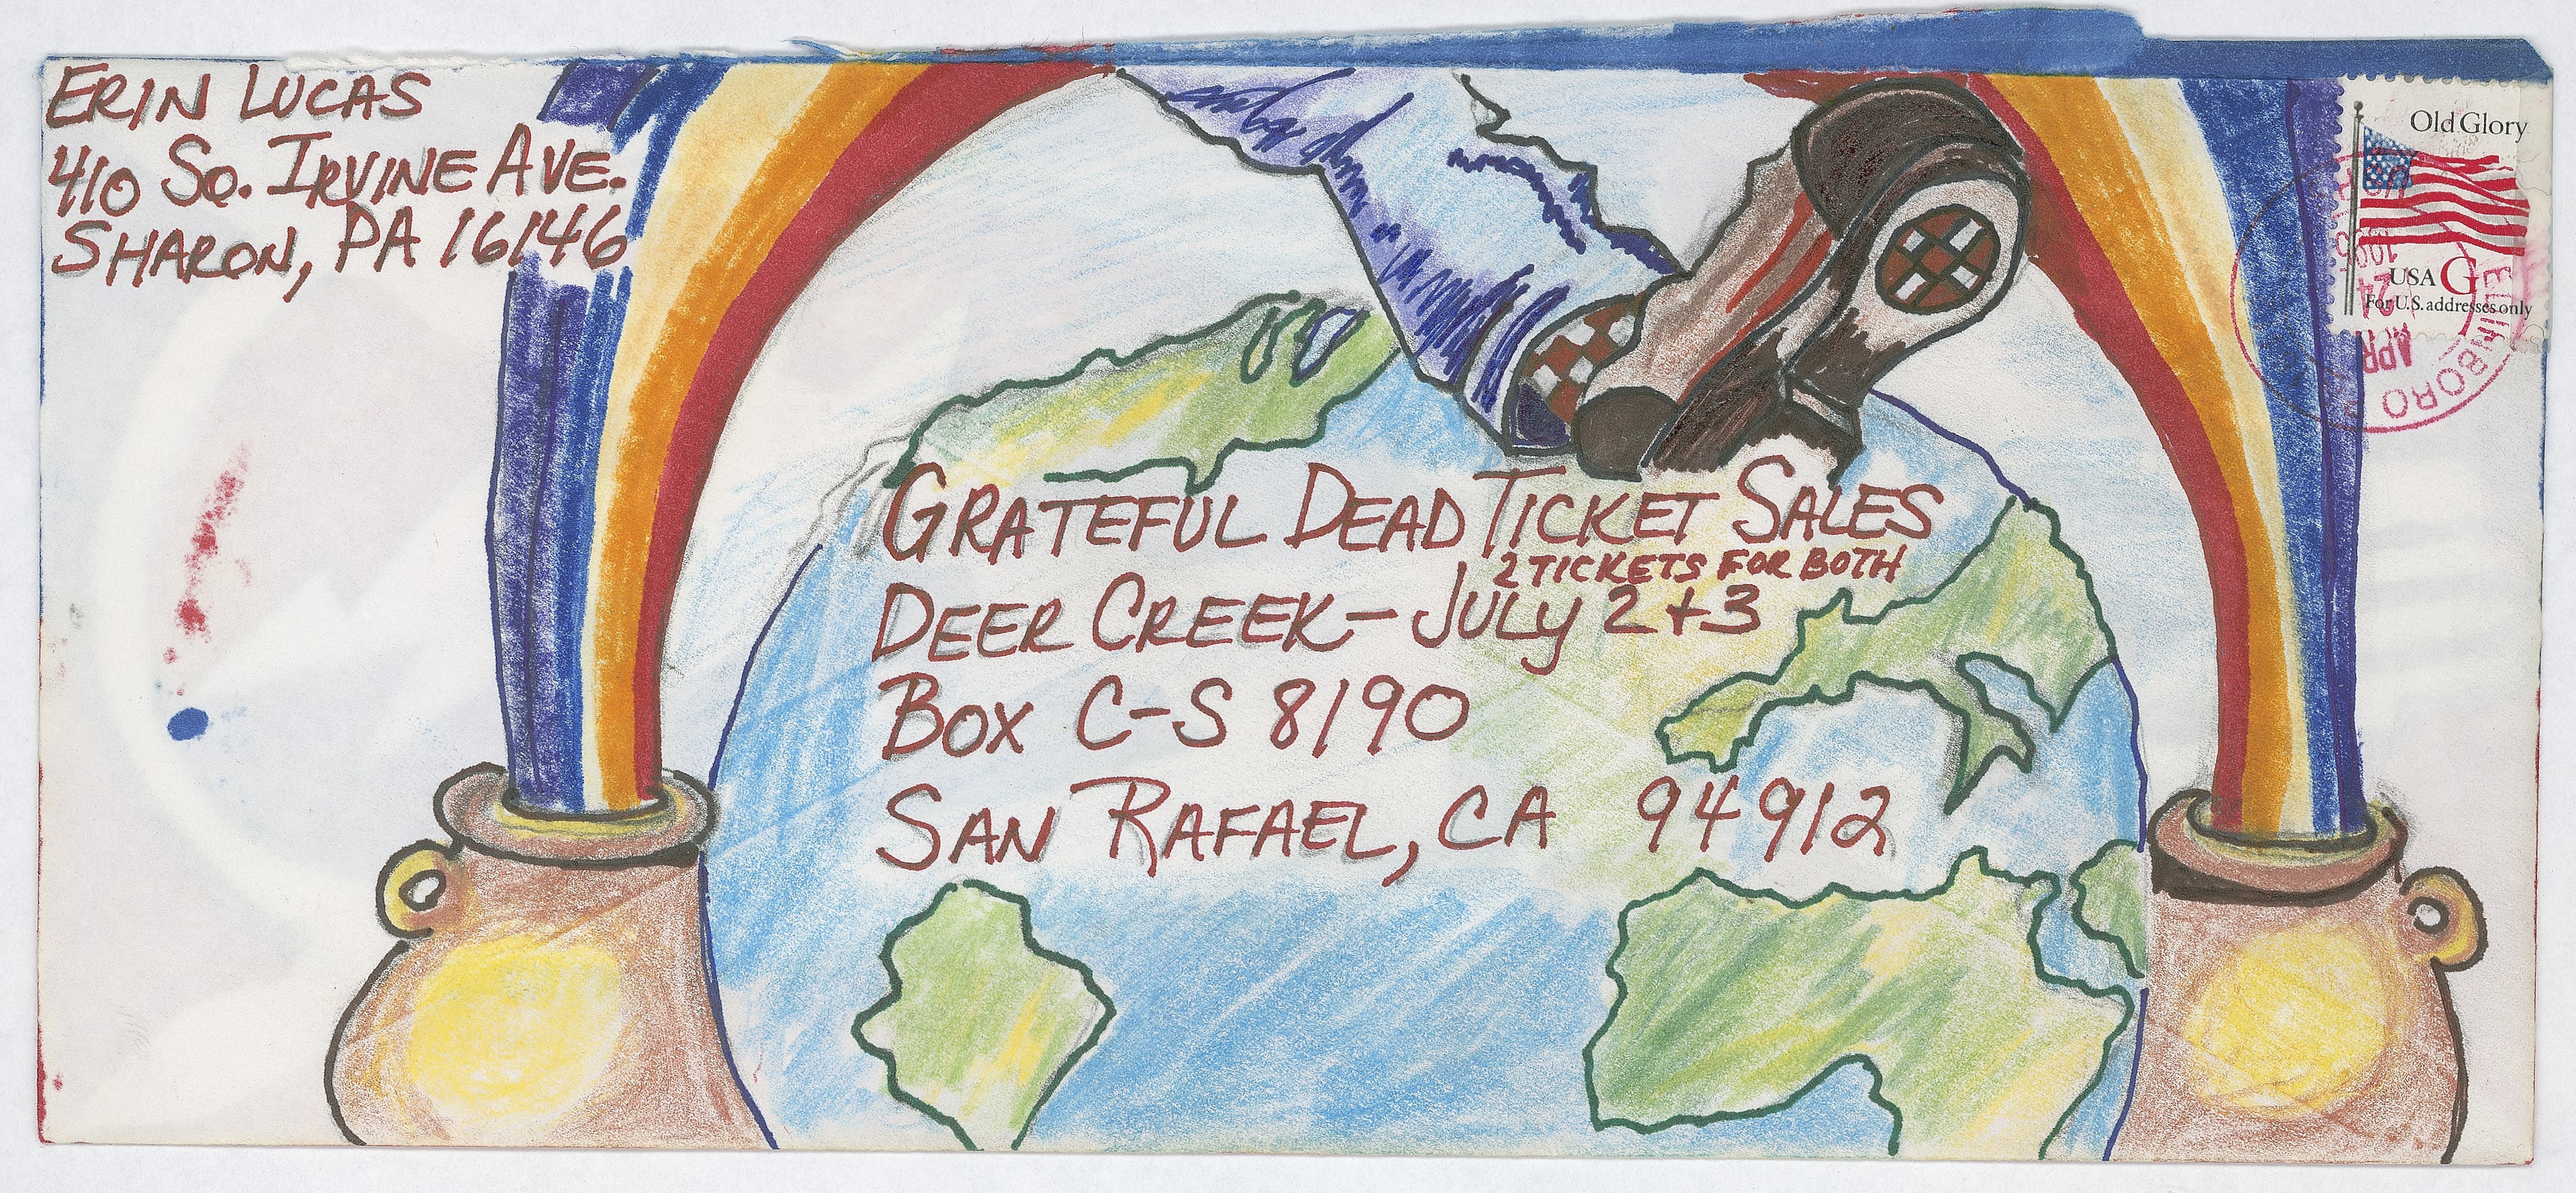 ERIN LUCAS
410 So. IRVINE AVE.
SHARON, PA 16146
Old Glory
USA G
For U.S. addresses only
APR
24
BORO
GRATEFUL DEAD TICKET SALES
2 TICKETS FOR BOTH
DEER CREEK - JULY 2 + 3
BOX C-S 8190
SAN RAFAEL, CA 94912